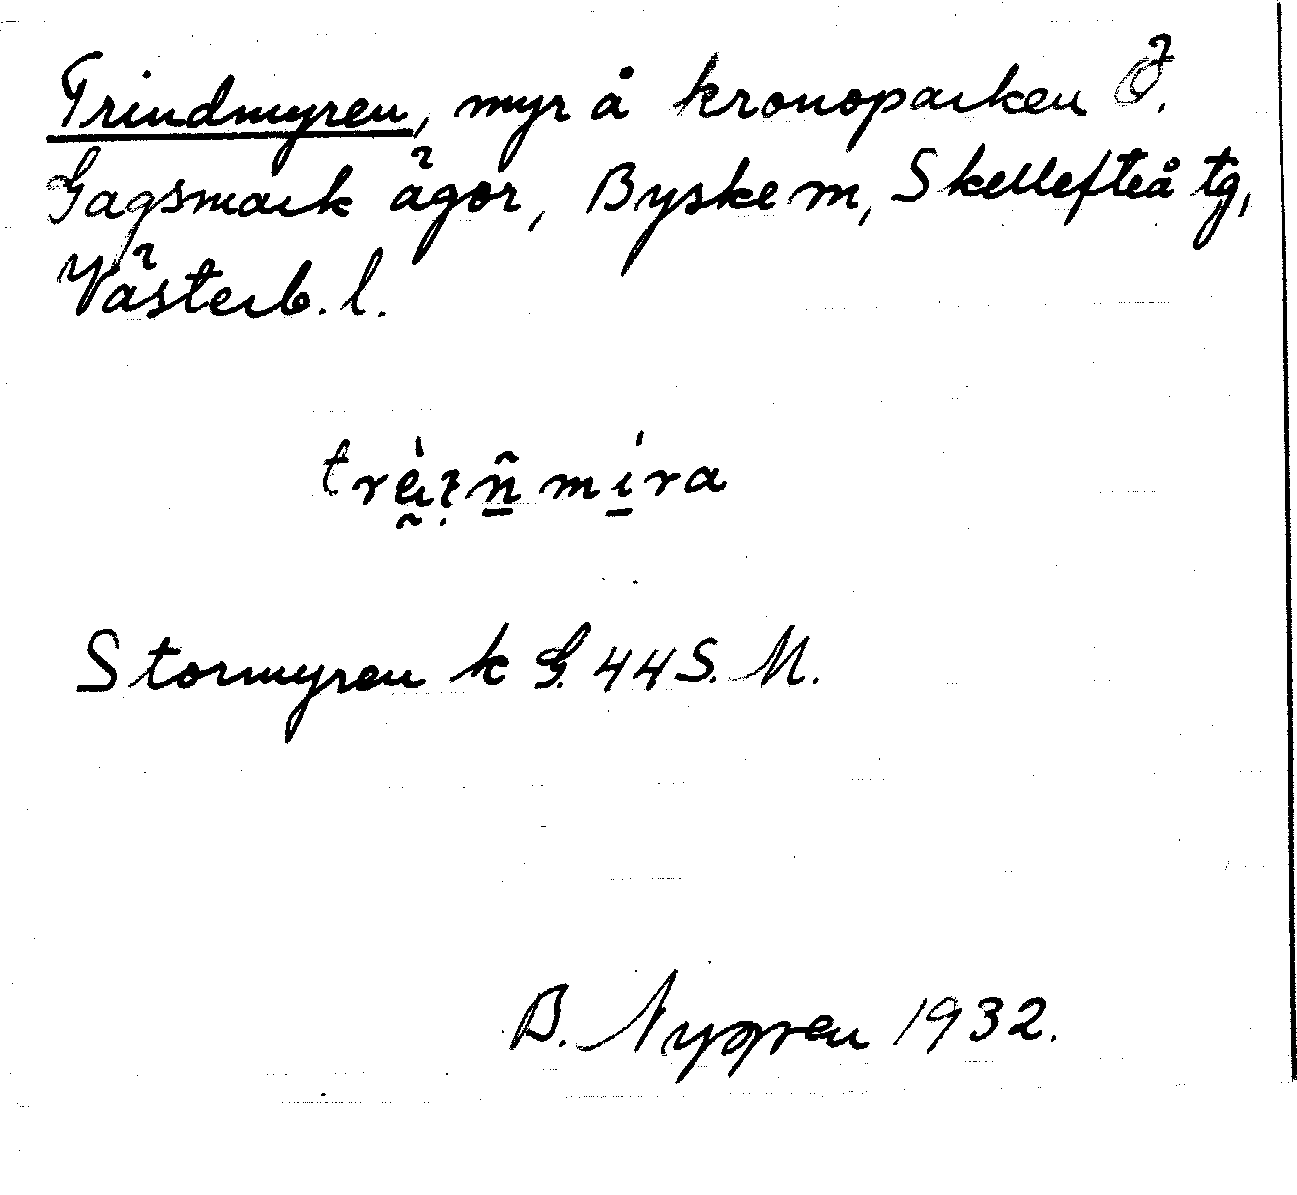 Trindmyren, myr å kronoparken Ö.
Gagsmark ägor, Byske m, Skellefteå tg,
Västerb. l.
Stormyren k G. 44 S. M.
B. Nygren 1932.